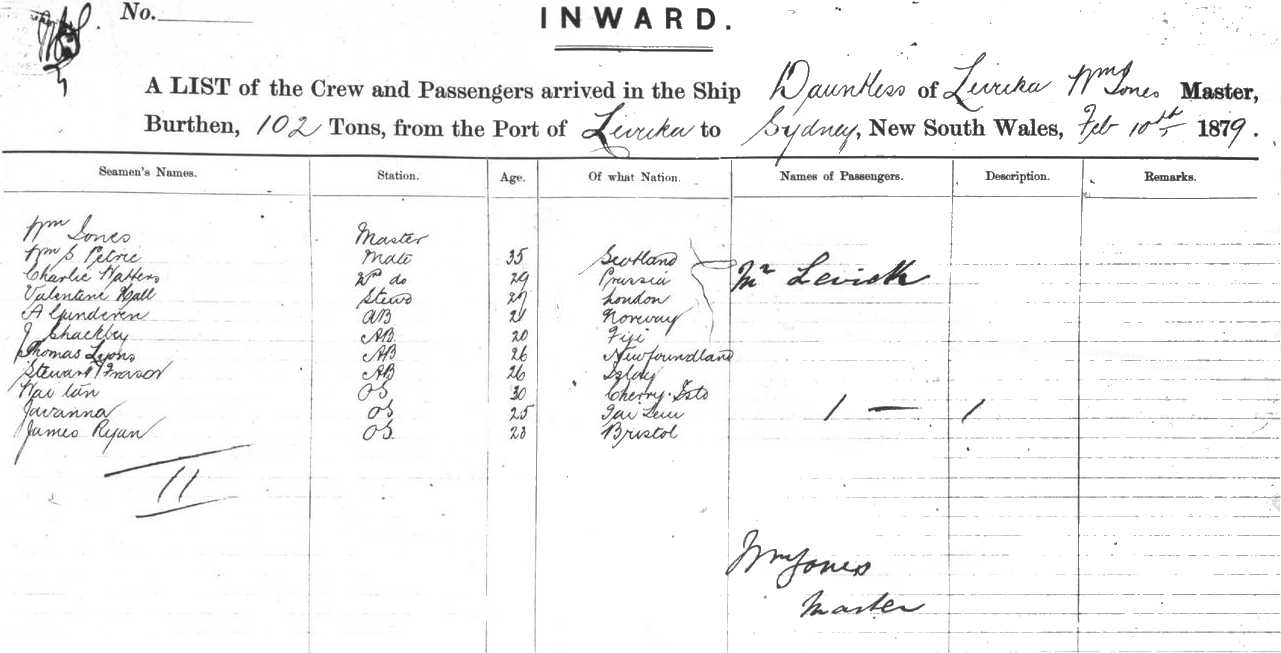 No.
INWARD.
A LIST of the Crew and Passengers arrived in the Ship Dauntless of Levuka Wm Jones Master,
Burthen, 102 Tons, from the Port of Levuka to Sydney, New South Wales, Feb 10th 1879.
Seamen's Names. Station. Age. Of what Nation. Names of Passengers. Description. Remarks.
Wm Jones Master
Wm S Petrie Mate 35 Scotland
Charlie Watters 2nd do 29 Prussia Mr Levick
Valentine Hall Stewd 27 London
A Gunderen AB 21 Norway
J Shackley AB 20 Fiji
Thomas Lyons AB 26 Newfoundland
Stewart Frasor AB 26 Islay
OS 30 Cherry Isld
Javanna OS 25 1 — 1
James Ryan OS 23 Bristol
11
Wm Jones
Master